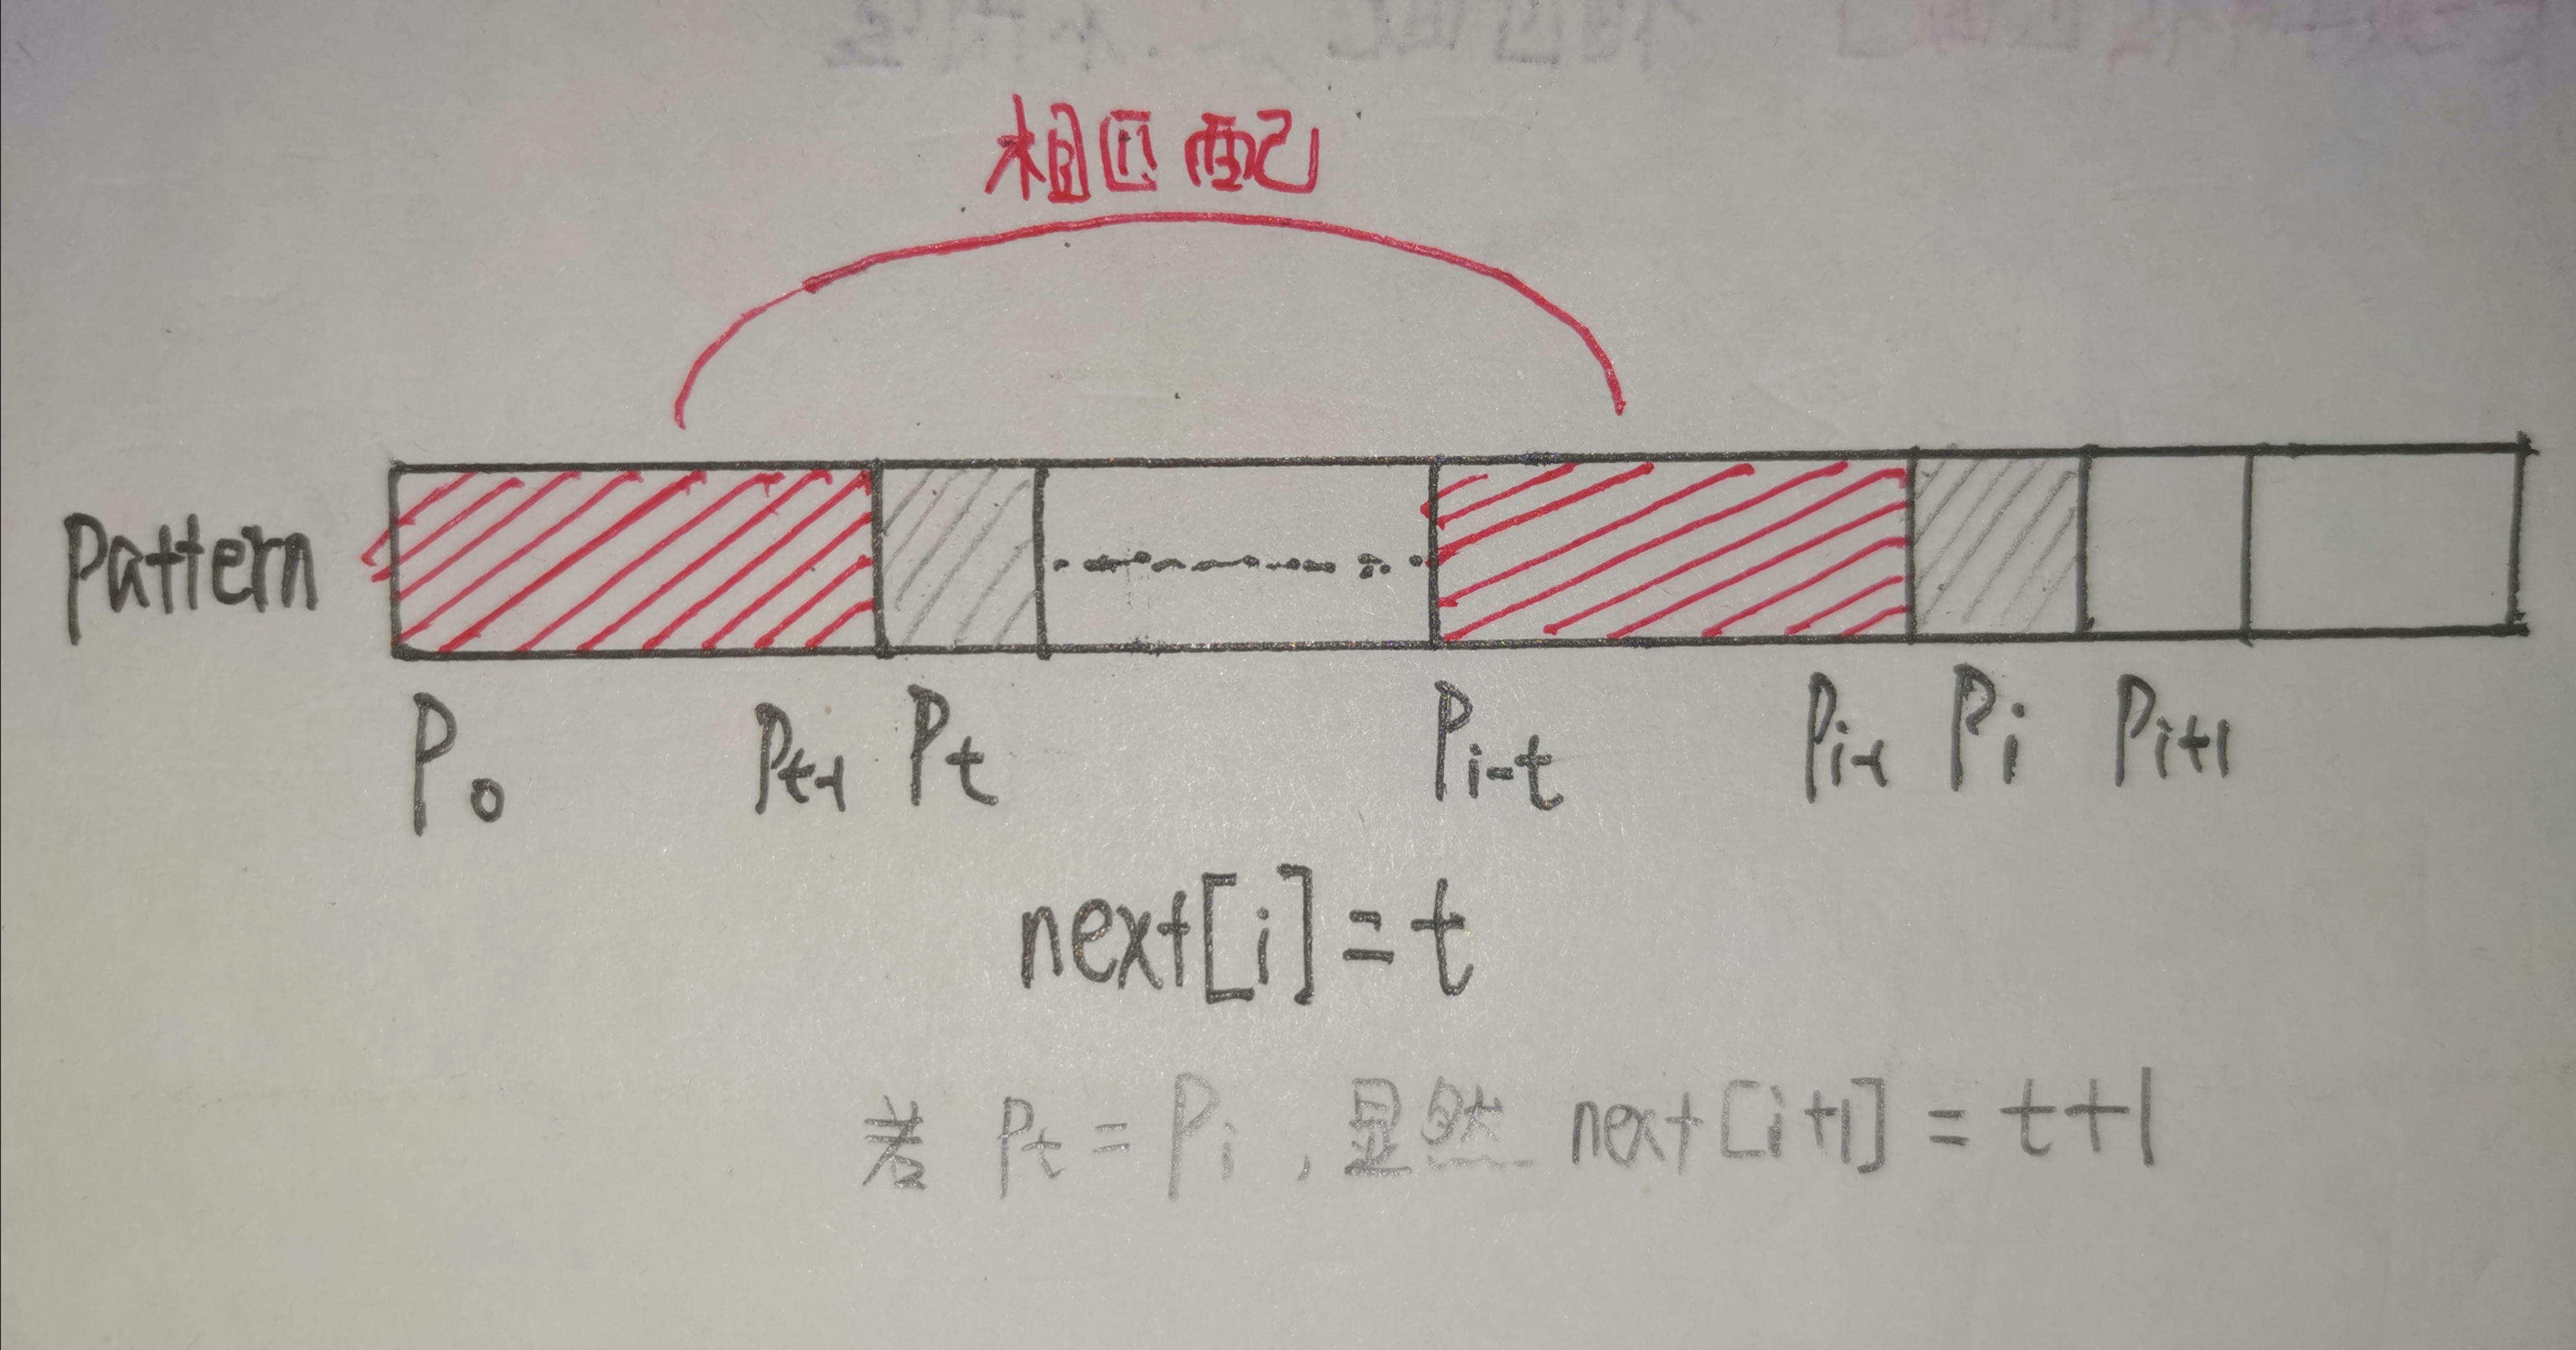 相匹配
Pattern
P₀ Pₜ₋₁ Pₜ Pᵢ₋ₜ Pᵢ₋₁ Pᵢ Pᵢ₊₁
next[i]=t
若 Pₜ=Pᵢ,显然 next[i+1]=t+1